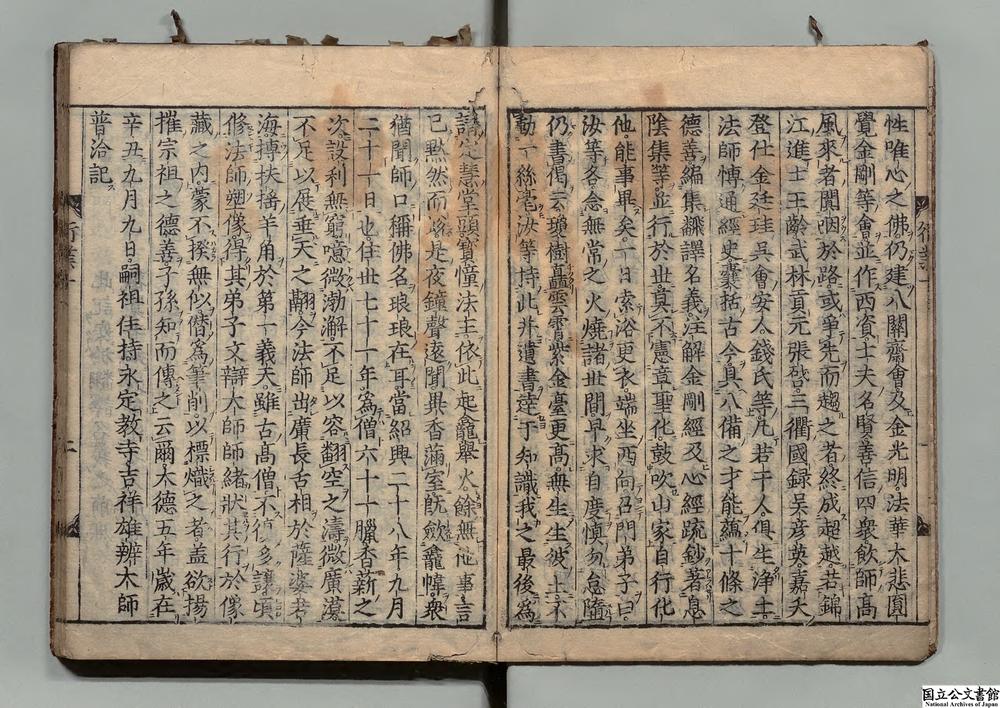 性唯心之佛仍建八關齋會及金光明法華大悲圓
覺金剛等會並作西資士夫名賢善信四衆飲師高
風來者闐咽於路或爭先而趨之者終成超越共錦
江進士王齡武林貢元張啓三衢國録吳彦英嘉夭
登仕金廷珪吳會安人錢氏等凡若干人俱生淨土
法師愽通經史囊括古今具八備之才能蘊十條之
德善編集飜譯名義注解金剛經及心經疏鈔著息
陰集等並行於世真不憲章聖化鼓吹山家自行化
他能事畢矣一日索浴更衣端坐西向召門弟子曰
汝等各念無常之火燒諸世間早求自度慎勿怠墮
仍書偈云瓊樹矗雲霄紫金臺更高無生生彼土不
動一絲毫汝等持此并遺書達于知識我之最後為
請定慧堂頭寶幢法主依此起龕舉火餘無他事言
已黙然而逝是夜鐘聲遠聞異香滿室旣斂龕幃衆
猶聞師口稱佛名琅琅在耳當紹興二十八年九月
二十一日也住世七十一年為僧六十一臘香薪之
次設利無窮噫微渤澥不足以容翻空之濤微廣漠
不足以展垂天之翮今法師出廣長舌相於薩婆若
海摶扶搖羊角於第一義天雖古髙僧不復多讓頃
修法師塑像得其弟子文辯大師師緒狀其行於像
藏之内蒙不揆無似僣為筆削以標熾之者盖欲揚
摧宗祖之德善子孫知而傳之云爾大德五年歳在
辛丑九月九日嗣祖住持永定教寺吉祥雄辨大師
普洽記
行業
二
国立公文書館
National Archives of Japan